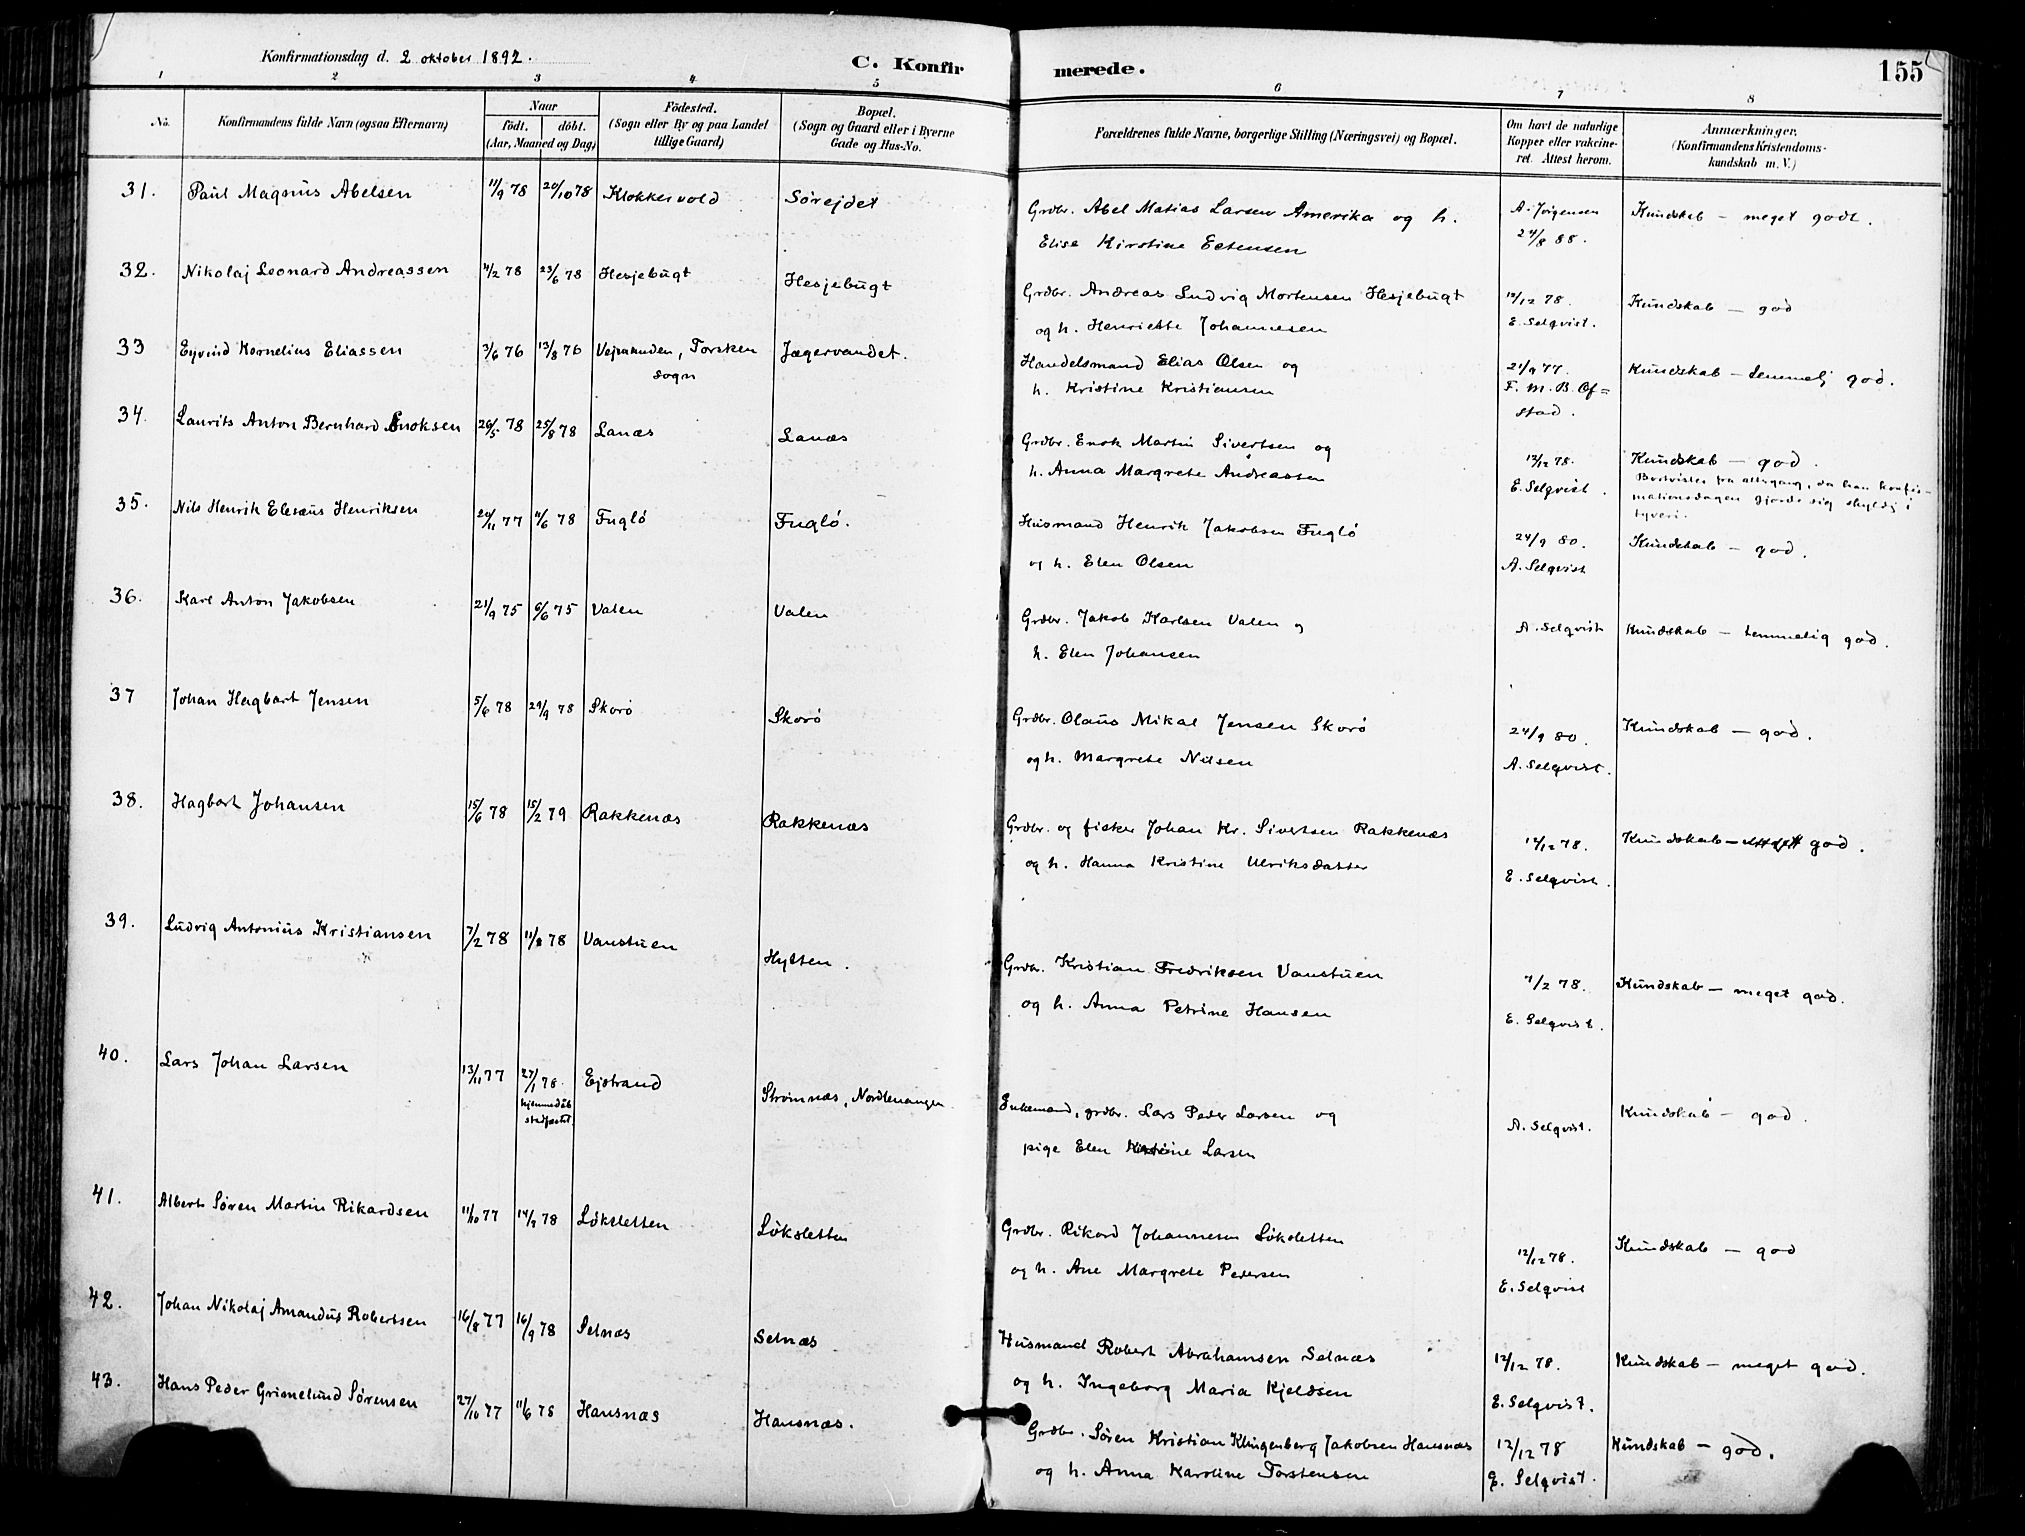 Konfirmationsdag d. 2 oktober 1892.
C. Konfirmerede.
155
1 2 3 4 5 6 7 8
No. Konfirmandens fulde Navn (ogsaa Efternavn) Naar födt. döbt. (Aar, Maaned og Dag) Födested. (Sogn eller By og paa Landet tillige Gaard) Bopæl. (Sogn og Gaard eller i Byerne Gade og Hus-No. Forældrenes fulde Navne, borgerlige Stilling (Næringsvei) og Bopæl. Om havt de naturlige Kopper eller vakcineret. Attest herom. Anmærkninger. (Konfirmandens Kristendomskundskab m. V.)
31. Paul Magnus Abelsen 11/9 78 20/10 78 Klokkervold Sørejdet Grdbr. Abel Matias Larsen Amerika og h. A. Jörgensen Kundskab – meget godt.
Elise Kirstine Estensen 24/8 88.
32. Nikolaj Leonard Andreassen 11/2 78 23/6 78 Hesjebugt Hesjebugt Grdbr. Andreas Ludvig Mortensen Hesjebugt 12/12 78. Kundskab – god
og h. Henriette Johannesen E. Selqvist.
33 Eyvind Kornelius Eliassen 3/6 76 13/8 76 Torsken Jægervandet. Handelsmand Elias Olsen og 21/9 77. Kundskab – temmelj god.
sogn h. Kristine Kristiansen F. M. B. Of=
stad.
34. Laurits Anton Bernhard Enoksen 26/5 78 25/8 78 Lanæs Lanæs Grdbr. Enok Martin Sivertsen og 12/12 78. Kundskab – god.
h. Anna Margrete Andreassen E. Selqvist.
Bortvistes fra altergang, da han konfir-
mationsdagen gjorde sig skyldj i
tyveri.
35. Nils Henrik Elesæus Henriksen 20/11 77 11/6 78 Fuglö Fuglö. Husmand Henrik Jakobsen Fuglö 24/9 80. Kundskab – god.
og h. Elen Olsen A. Selqvist
36. Karl Anton Jakobsen 21/9 75 6/6 75 Valen Valen Grdbr. Jakob Karlsen Valen og A. Selqvist Kundskab – temmelig god.
h. Elen Johansen
37 Johan Hagbart Jensen 5/6 78 29/9 78 Skorö Skorö Grdbr. Olaus Mikal Jensen Skorö 24/9 80. Kundskab – god.
og h. Margrete Nilsen A. Selqvist.
38. Hagbart Johansen 15/6 78 15/2 79 Rakkenæs Rakkenæs Grdbr. og fisker Johan Kr. Sivertsen Rakkenæs 12/12 78. Kundskab – god.
og h. Hanna Kristine Ulriksdatter E. Selqvist.
39. Ludvig Antonius Kristiansen 7/2 78 11/8 78 Vanstuen Hylten. Grdbr. Kristian Fredriksen Vanstuen 7/2 78. Kundskab – meget god.
og h. Anna Petrine Hansen E. Selqvist.
40. Lars Johan Larsen 13/11 77 27/1 78. Ejstrand Strömnæs, Nordlenangen Enkemand, grdbr. Lars Peder Larsen og A. Selqvist. Kundskab – god.
hjemmedåb
stadfæstet.
pige Elen Larsen
41. Albert Søren Martin Rikardsen 11/10 77 14/7 78 Løksletten Løksletten Grdbr. Rikard Johannesen Løksletten 12/12 78. Kundskab – god
og h. Ane Margrete Pedersen E. Selqvist
42. Johan Nikolaj Amandus Robertsen 16/8 77 16/9 78 Selnæs Selnæs Husmand Robert Abrahamsen Selnæs 12/12 78. Kundskab – meget god.
og h. Ingeborg Maria Kjeldsen E. Selqvist.
43. Hans Peder Grimelund Sørensen 27/10 77 11/6 78 Hansnæs Hansnæs. Grdbr. Søren Kristian Klingenberg Jakobsen Hansnæs 12/12 78 Kundskab – god.
og h. Anna Karoline Torstensen E. Selqvist.